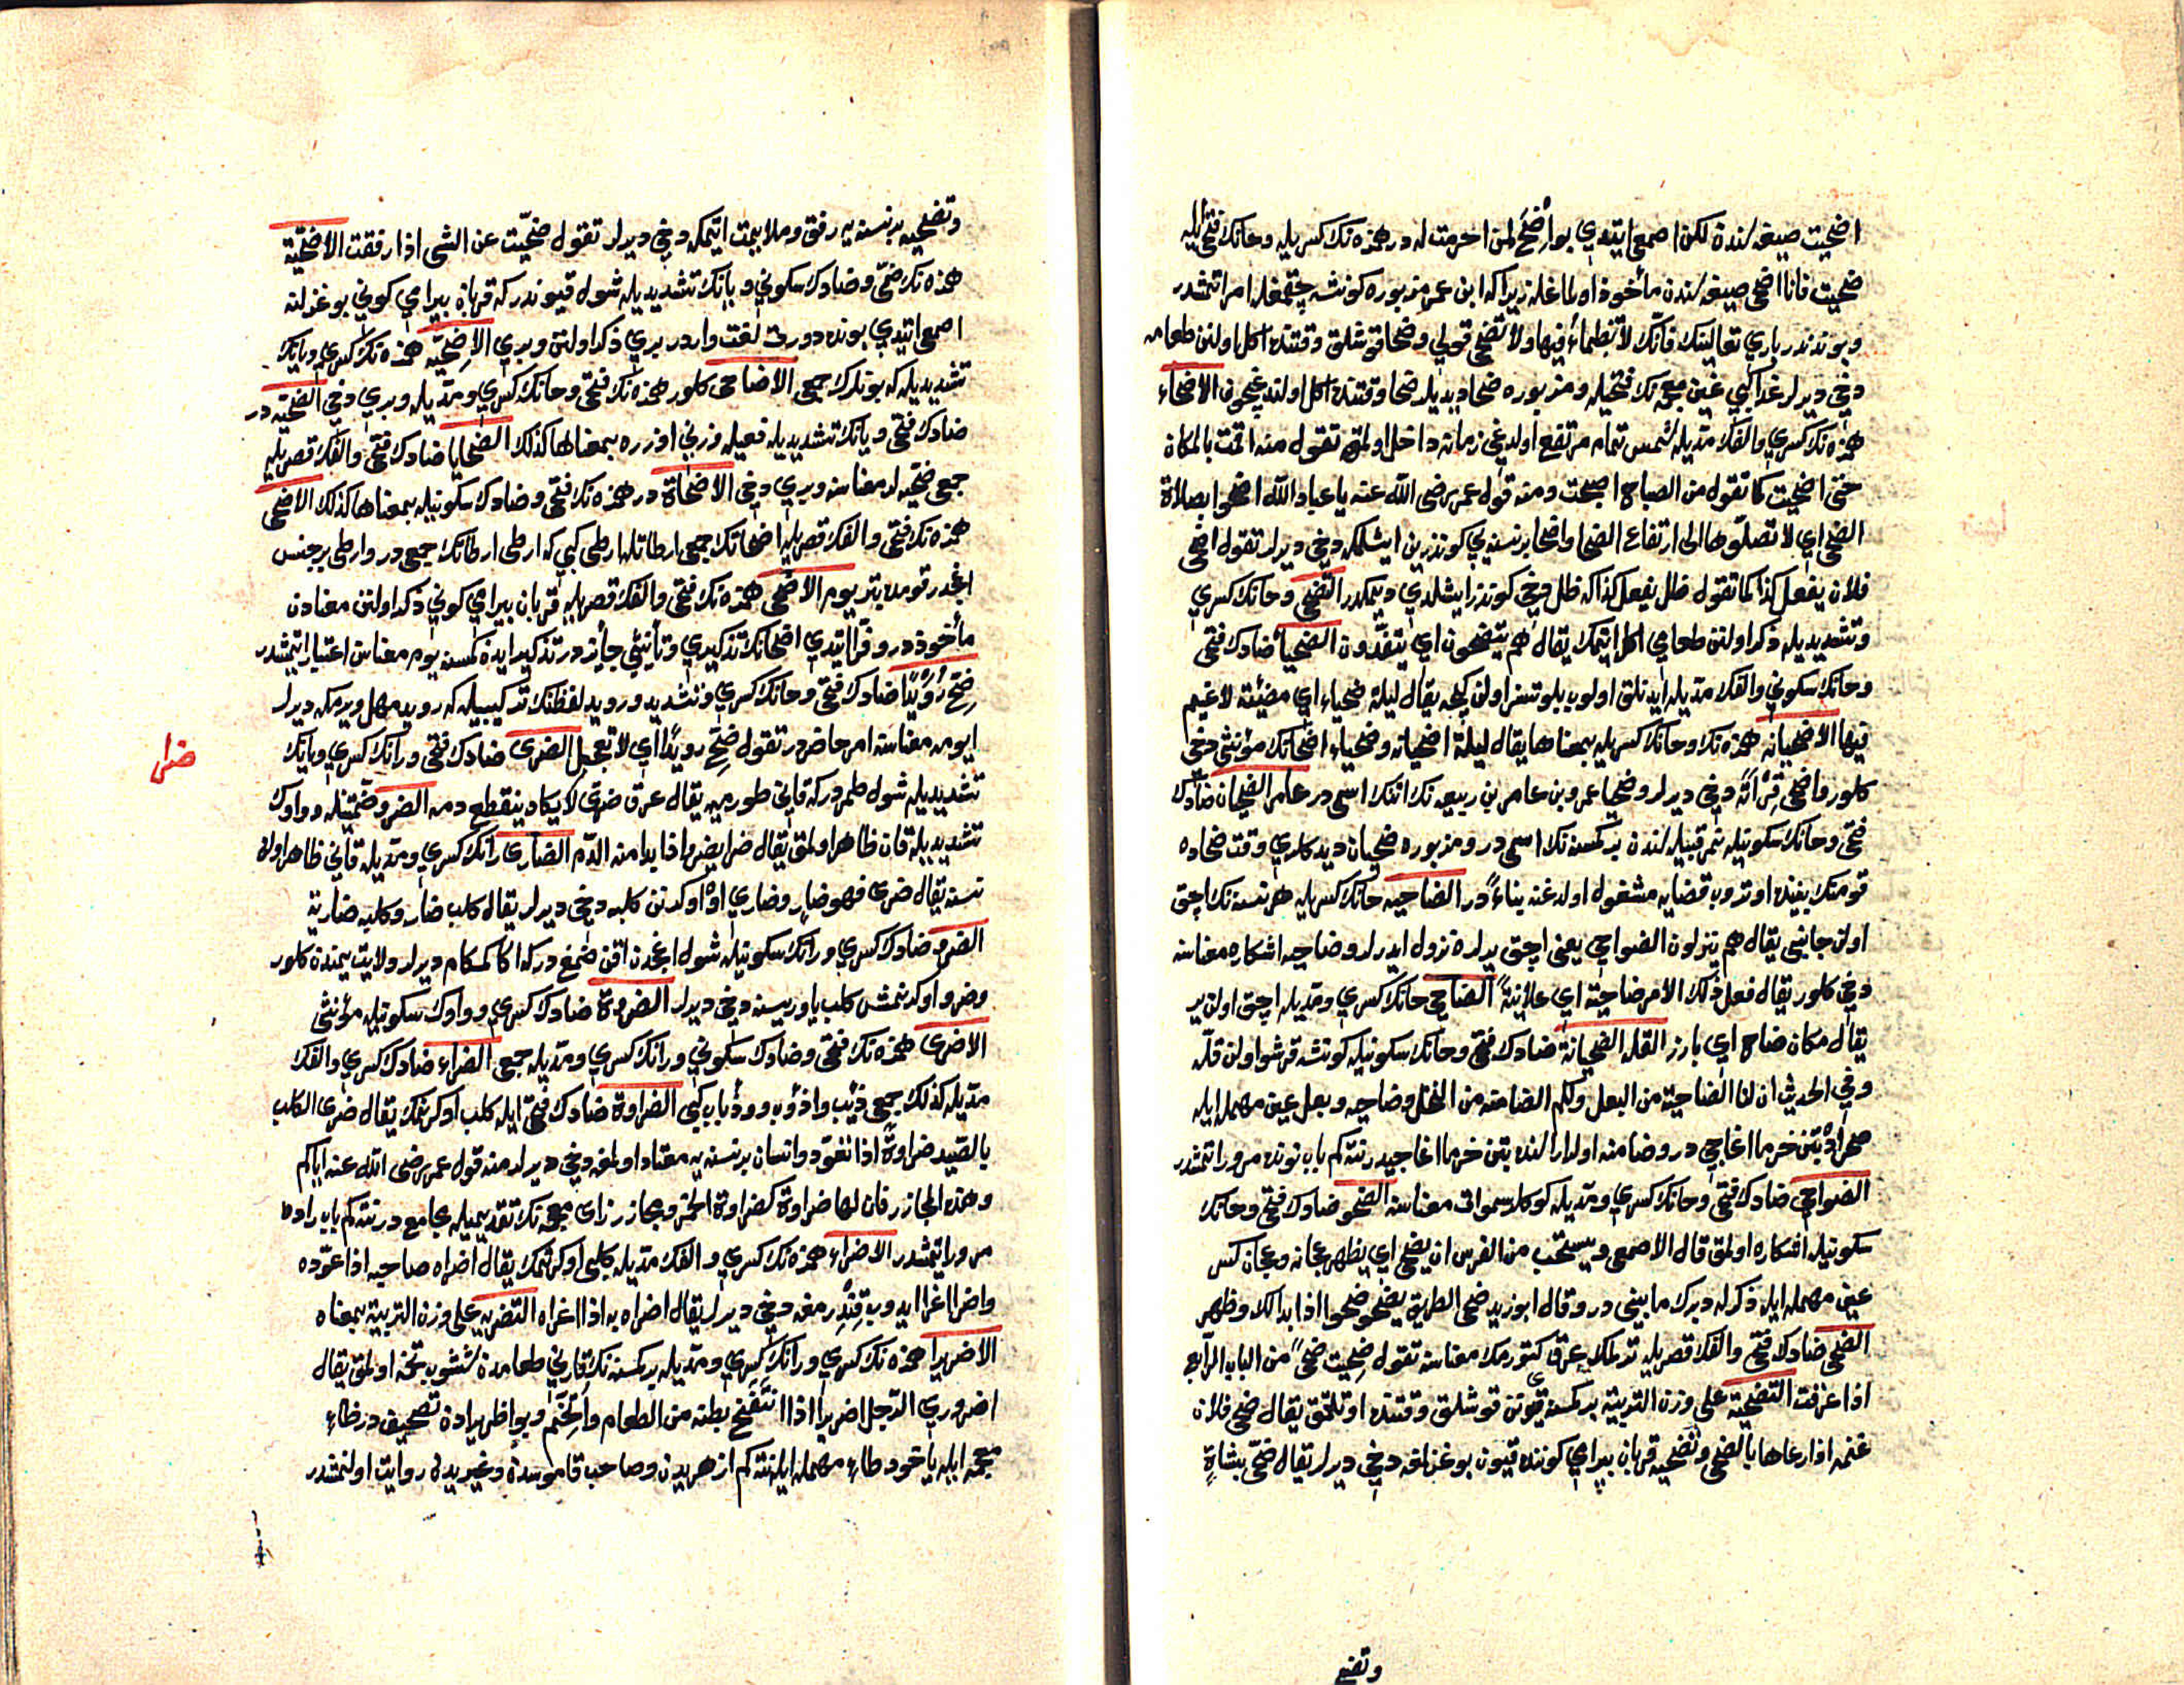 اضحيت صيغه‌لندن لكن اصمعى ايتدي بو اضح لمن احرمت له در همزه نك كسريله وحانك فتحيله
ضحيت فانا اضحى صيغه‌لندن مأخوذ اولماغله زيرا كه ابن عمر مزبوره كونشه چقمغله امر اتمشدر
وبوندندر باري تعالينك فانّك لا تظمأ فيها ولا تضحى قولي وضحا قوشلق وقتنده اكل اولنن طعامه
دخي ديرلر غدا كبي غين معجمه نك فتحيله ومزبوره ضحا ديديلر ضحا وقتنده اكل اولندغيچون الاضحاء
همزه نك كسري والفك مدّيله شمس تمام مرتفع اولدغي زمانه داخل اولمق تقول منه اقمت بالمكان
حتى اضحيت كما تقول من الصباح اصبحت ومنه قول عمر رضى الله عنه يا عباد الله اضحوا بصلاة
الضحى اي لا تصلّوها الى ارتفاع الضحا واضحا برنسنه يي كوندزين ايشلمكه دخي ديرلر تقول اضحى
فلان يفعل كذا كما تقول ظل يفعل كذا كه ظل دخي كوندز ايشلدي ديمكدر التضحى وحانك كسري
وتشديديله ذكر اولنن طعامي اكل ايتمك يقال هم يتضحون اي يتغدّون الضحياء ضادك فتحى
وحانك سكوني والفك مدّيله ايدنلق اولوب بلوتسز اولن كيجه يقال ليلة ضحياء اي مضيئة لا غيم
فيها الاضحيانه همزه نك وحانك كسريله بمعناها يقال ليلة اضحيانه وضحياء اضحانك مؤنثى دخى
كلور واضحى قرأته دخي ديرلر وضحيا عمرو بن عامر بن ربيعه نك اتنك اسمى در عامر الضحيان ضادك
فتحى وحانك سكونيله نمر قبيله‌لندن بر كمسنه نك اسمى در ومزبوره ضحيان ديدكلري وقت ضحاده
قومنك بيننده اوتروب قضايه مشغول اولدغنه بناءً در الضاحيه حانك كسريله هر نسنه نك اچق
اولن جانبي يقال هم ينزلون الضواحي يعنى اچق يرلرده نزول ايدرلر وضاحيه اشكاره معناسنه
دخي كلور يقال فعل ذلك الامر ضاحية اي علانية الضاحي حانك كسري ومدّيله اچق اولن ير
يقال مكان ضاح اي بارز القلة الضحيانة ضادك فتحى وحانك سكونيله كونشه قرشو اولن قلّه
وفي الحديث ان لنا الضاحية من البعل ولكم الضامنه من النخل وضاحيه وبعل عين مهمله ايله
صحراده بتن خرما اغاجي در وضامنه اولدار النده بتن خرما اغاجيدر نته كم باب نونده مرور اتمشدر
الضواحي ضادك فتحى وحانك كسري ومدّيله كوكلر سموات معناسنه الضحو ضادك فتحى وحانك
سكونيله اشكاره اولمق قال الاصمعى ويستحب من الفرس ان يضحى اي يظهر عجانه وعجان كسر
عين مهمله ايله ذكرله دبرك مابينى در وقال ابو زيد ضحى الطريق يضحو ضحوا اذا بدا لك وظهر
الضحى ضادك فتحى والفك قصريله تدلمك عرق كتورمك معناسنه تقول ضحيت ضحىً من الباب الرابع
اذا عرقت التضحية على وزن التربية بر كمسنه قيونن قوشلق وقتنده اوتلتمق يقال ضحى فلان
غنمه اذا رعاها بالضحى وتضحيه قربان بيرامي كوننده قيون بوغزلمق دخي ديرلر يقال ضحّى بشاةٍ
وتضحيه
وتضحيه برنسنه يه رفق وملايمت ايتمكه دخي ديرلر تقول ضحّيت عن الشى اذا رفقت الاضحيّة
همزه نك ضمّى وضادك سكوني ويانك تشديديله شول قيوندر كه قربان بيرامي كوني بوغزلنه
اصمعى ايتدي بونده دورت لغت واردر بري ذكر اولنن وبري الاِضحيّه همزه نك كسري ويانك
تشديديله كه بونلرك جمعى الاضاحى كلور همزه نك فتحى وحانك كسري ومدّيله وبري دخي الضحيّه در
ضادك فتحى ويانك تشديديله فعيله وزني اوزره بمعناها كذلك الضحايا ضادك فتحى والفك قصريله
جمعى ضحيه‌لر معناسنه وبري دخي الاضحاة در همزه نك فتحى وضادك سكونيله بمعناها كذلك الاضحى
همزه نك فتحى والفك قصريله اضحاتك جمعى ارطاتله ارطى كبي كه ارطى ارطاتك جمعى در وارطى بر جنس
اغجدر قومده بتر يوم الاضحى همزه نك فتحى والفك قصريله قربان بيرامي كوني ذكر اولنن معنادن
مأخوذدر وفرّا ايتدي اضحانك تذكيري وتأنيثي جائزدر تذكير ايدن كمسنه يوم معناسن اعتبار ايتمشدر
ضَحِّ رُوَيْدًا ضادك فتحى وحانك كسري وتشديد ورويد لفظنك تركيبيله كه رويد مهل ويرمكه ديرلر
ايومه معناسنه امر حاضردر تقول ضحّ رويدًا اي لا تعجل الضرى ضادك فتحى ورانك كسري ويانك
ضرى
تشديديله شول طمردر كه قاني طورميه يقال عرق ضرى لا يكاد ينقطع دمه الضرو ضمّتينله وواوك
تشديديله قان ظاهر اولمق يقال ضرا يضرو اذا بدا منه الدّم الضاري رانك كسري ومدّيله قاني ظاهر اولن
نسنه يقال ضرى فهو ضارٍ وضاري اوه اوكردنن كلبه دخي ديرلر يقال كلب ضار وكلبه ضارية
الضرو ضادك كسري ورانك سكونيله شول اغجدن اقن ضمغدركه اكا كمكام ديرلر ولايت يمندن كلور
وضرو اوكرنمش كلب ياوريسنه دخي ديرلر الضروة ضادك كسري وواوك سكونيله مؤنثى
الاضرى همزه نك فتحى وضادك سكوني ورانك كسري ومدّيله جمعى الضراء ضادك كسري والفك
مدّيله كذلك جمعى ذئب واذؤب وذئاب كبى الضراوة ضادك فتحى ايله كلب اوكرنمك يقال ضرى الكلب
بالصّيد ضراوةً اذا تعوّد وانسان برنسنه يه معتاد اولمغه دخي ديرلر منه قول عمر رضى الله عنه اياكم
وهذه المجازر فان لها ضراوة كضراوة الخمر ومجازر زاى معجمه نك تقديميله مجامع در نته كم باب راده
مرور ايتمشدر الاضراء همزه نك كسري والفك مدّيله كلبى اوكرتمك يقال اضراه صاحبه اذا عوّده
واضرا اغرا ايدوب قندرمغه دخي ديرلر يقال اضراه به اذا اغراه التضريه على وزن التربية بمعناه
الاضريرا همزه نك كسري ورانك كسري ومدّيله بر كمسنه نك قارني طعامدن ششوب تخمه اولمق يقال
اضروري الرّجل اضريرا اذا انتفخ بطنه من الطعام واتّخم وبو اظهريرادن تصحيفدر ظاء
معجمه ايله ياخود طاء مهمله ايله نته كم ازهريدن وصاحب قاموسدن وغيريدن روايت اولنمشدر